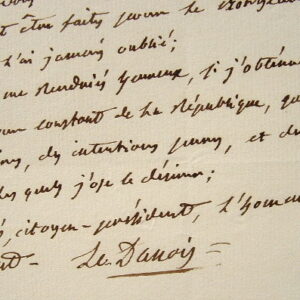 t être faits pour le
l'ai jamais oublié;
me rendriés heureux, si j'obtenois
constant de la République, qu
des intentions pures, et d
les quels j'ose le désirer;
citoyen-président, l'homm
Le Danois =